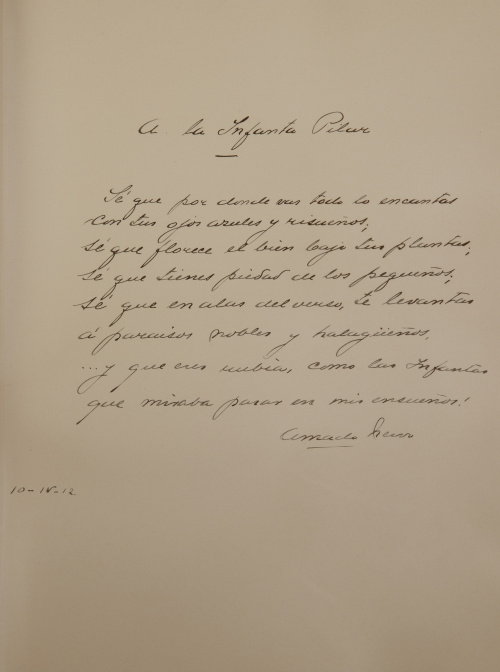 A la Infanta Pilar
Sé que por donde vas todo lo encantas
con tus ojos azules y risueños;
sé que florece el bien bajo tus plantas;
sé que tienes piedad de los pequeños;
sé que en alas del verso, te levantas
á paraisos nobles y halagüeños,
...y que eres rubia, como las Infantas
que miraba pasar en mis ensueños!
Amado Nervo
10-IV-12